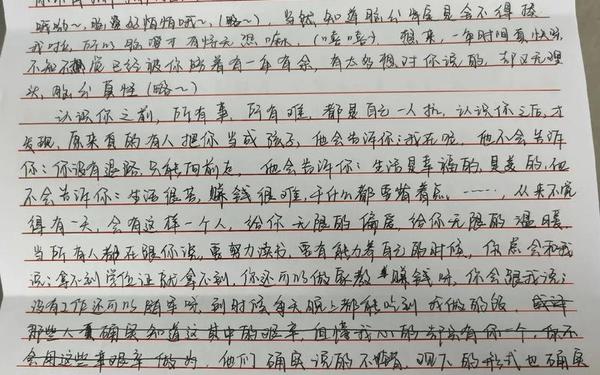 哦~~，(略~)，当然，知道脸公当层是会不得挨
我时，所以脸要才有恃无恐嘛，(嘻嘻) 想来，一年时间真快呀，
不知不觉已经被你陪着有一年有余，有太多想对你说的，却又无理
头，脸公真懒(略~)
认识你之前，所有事，所有难，都是自己一人扛，认识你之后，才
发现，原来真的有人把你当成孩子，他会告诉你：我在呢，他不会告诉
你：你没有退路，只能向前走，他会告诉你：生活是幸福的，是美的，他
不会告诉你：生活很苦，赚钱很难，干什么都要省着点。……，从来不觉
得有一天，会有这样一个人，给你无限的偏爱，给你无限的温暖，
当所有人都在跟你说，要努力读书，要有能力养自己的时候，你总会和我
说：拿不到学位证就拿不到，你还可以做家教赚钱呀，你会跟我说：
没有工作还可以随军呀，到时候每天晚上都能吃到我做的饭，
那些人确实知道这其中的艰辛，但懂我心的却只有你一个，你不
会用这些艰辛做为，他们确实说的不错，现下的形式也确实